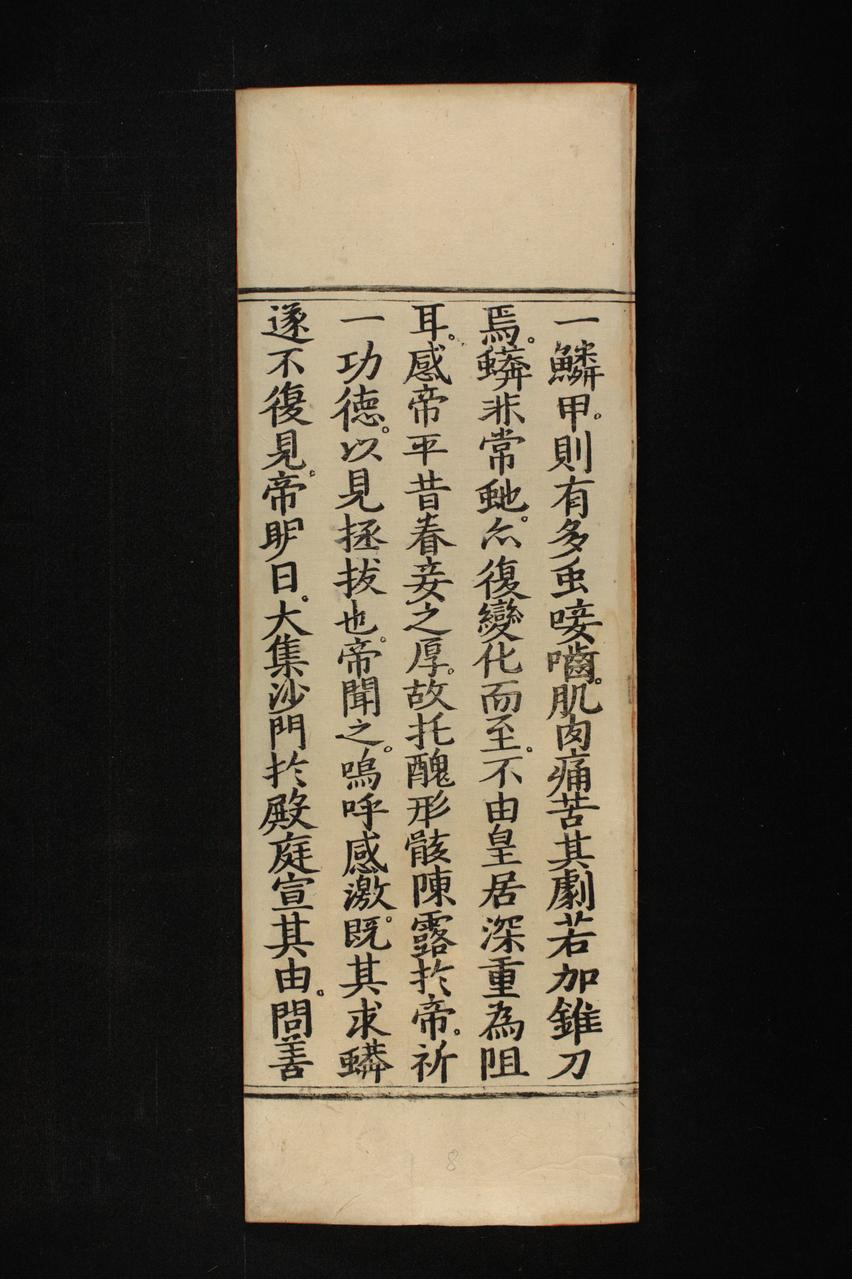 一鱗甲。則有多虫唼嚙。肌肉痛苦其劇若加錐刀
焉。蟒非常虵。亦復變化而至。不由皇居深重為阻
耳。感帝平昔眷妾之厚。故托醜形骸陳露於帝。祈
一功德。以見拯拔也。帝聞之。嗚呼感激。既其求蟒
遂不復見。帝明日。大集沙門於殿庭宣其由。問善
8